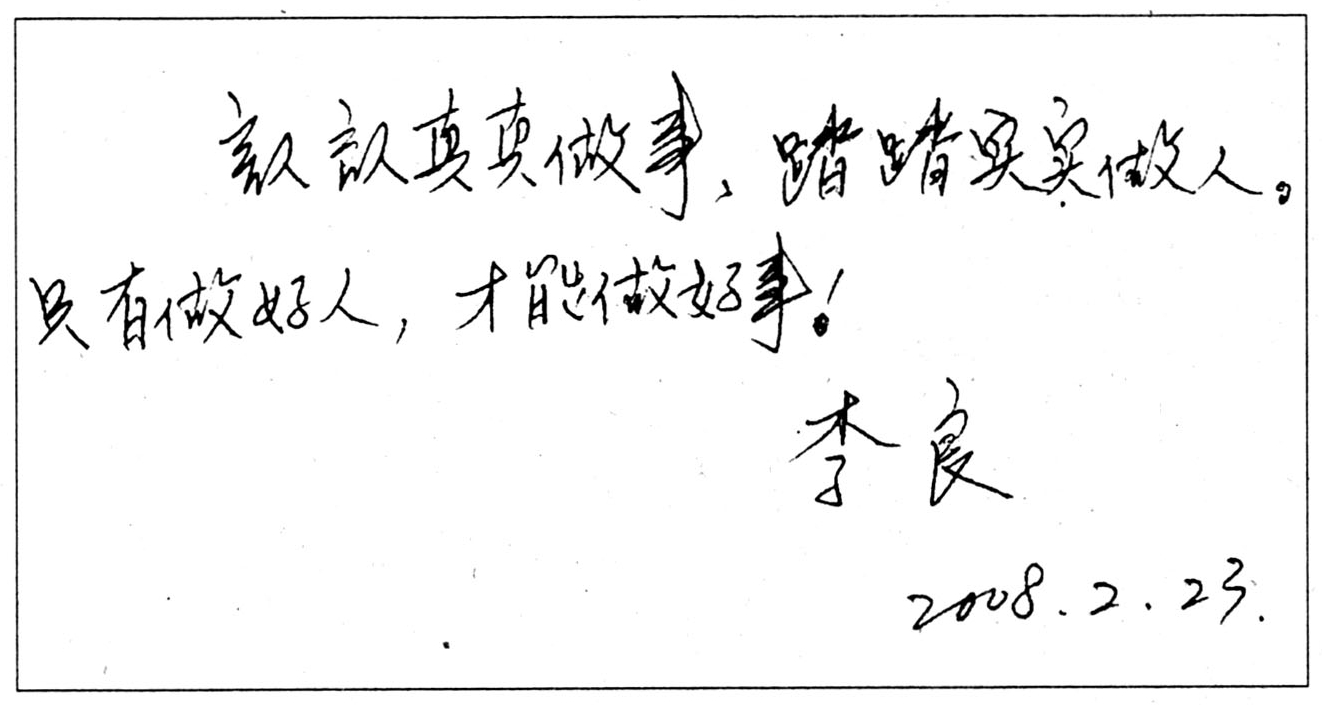 认认真真做事，踏踏实实做人。
只有做好人，才能做好事！
李良
2008.2.23.